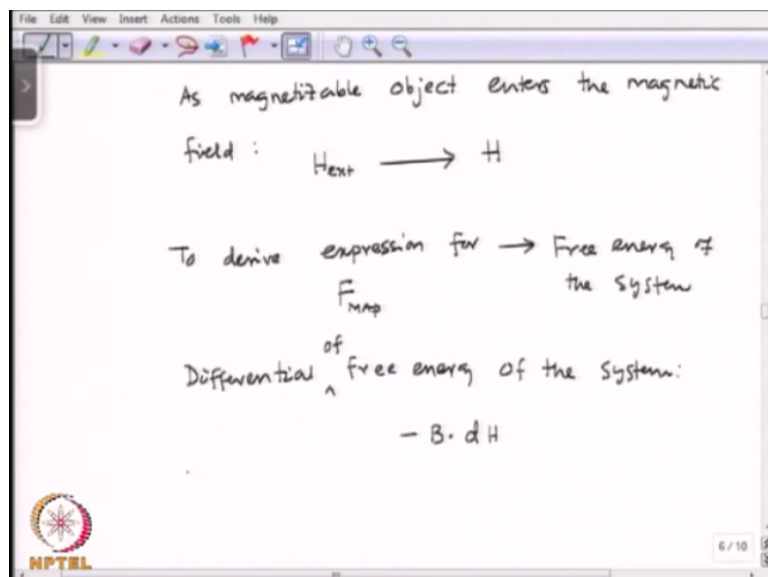 File Edit View Insert Actions Tools Help
As magnetizable object enters the magnetic
field : Hext ⟶ H
To derive expression for → Free energy of
FMAP the system
of
Differential ^ free energy of the system:
- B. dH
NPTEL
6/10